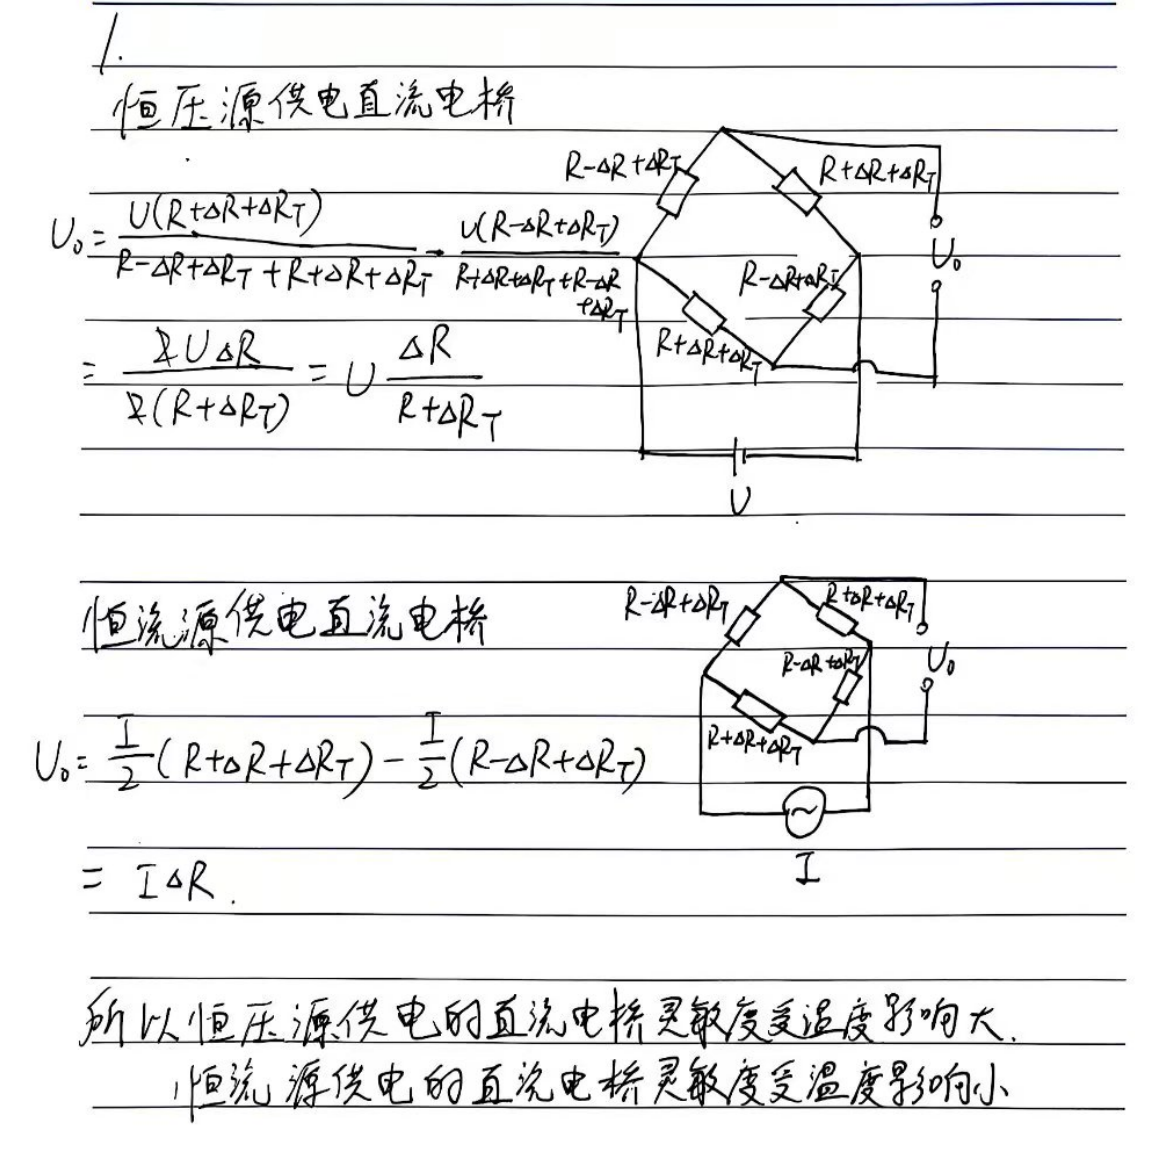 1.
恒压源供电直流电桥
U₀ = U(R+ΔR+ΔR_T) / (R-ΔR+ΔR_T+R+ΔR+ΔR_T) - U(R-ΔR+ΔR_T) / (R+ΔR+ΔR_T+R-ΔR+ΔR_T)
= 2UΔR / 2(R+ΔR_T) = U ΔR / (R+ΔR_T)
R-ΔR+ΔR_T
R+ΔR+ΔR_T
U₀
R-ΔR+ΔR_T
R+ΔR+ΔR_T
U
恒流源供电直流电桥
R-ΔR+ΔR_T
R+ΔR+ΔR_T
R-ΔR+ΔR_T
U₀
R+ΔR+ΔR_T
U₀ = I/2 (R+ΔR+ΔR_T) - I/2 (R-ΔR+ΔR_T)
~
I
= IΔR.
所以恒压源供电的直流电桥灵敏度受温度影响大.
恒流源供电的直流电桥灵敏度受温度影响小